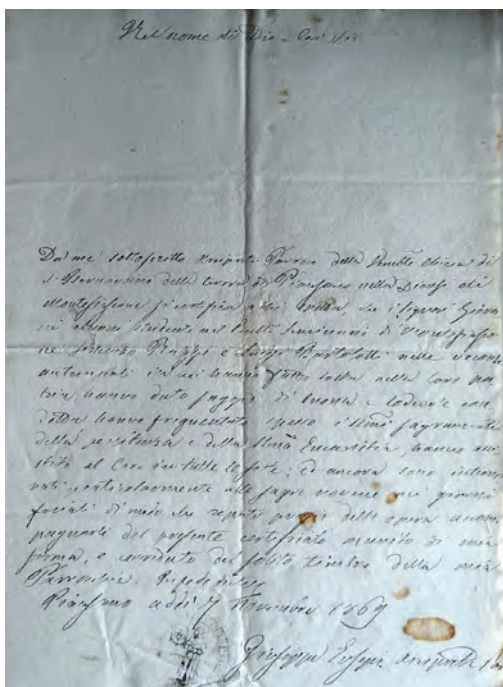 Nel nome di Dio = Così sia
Da me sottoscritto Arciprete Parroco della Venle Chiesa di
S. Bernardino della terra di Piansano nella Diocesi di
Montefiascone si certifica che i signori Giova
alunni studenti nel Seminario di Montefiasco
ne Lorenzo Bartolotti nelle vacanze
autunnali in cui hanno fatto sosta nella loro pa
tria hanno dato saggio di buona e lodevole con
dotta hanno frequentato spesso i sagramenti
della penitenza e della Eucaristia, hanno assi
stito al Coro in tutte le feste; ed ancora sono interve
nuti particolarmente alle sagre novene nei giorni
feriali di modo che reputo dell'opera accom
pagnarli del presente certificato munito di mia
firma, e corredato del solito timbro della mia
Parrocchia. In fede
Piansano addì 7 Novembre 1869
Giuseppe Eusepi Arciprete